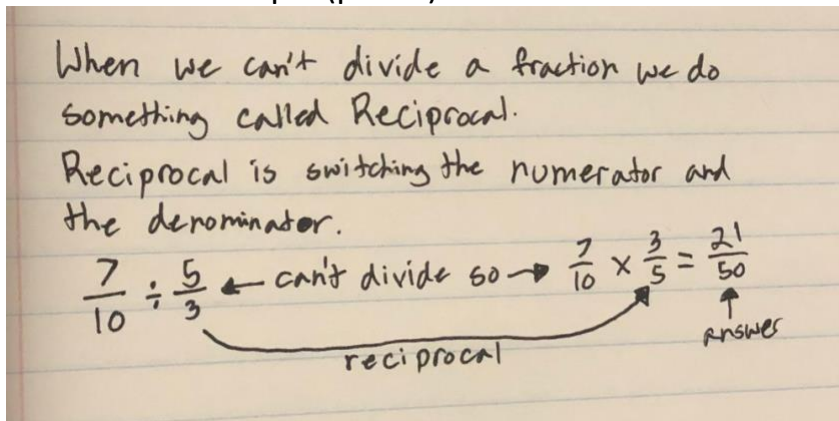 When we can't divide a fraction we do
something called Reciprocal.
Reciprocal is switching the numerator and
the denominator.
7/10 ÷ 5/3 ← can't divide so → 7/10 × 3/5 = 21/50
reciprocal
answer